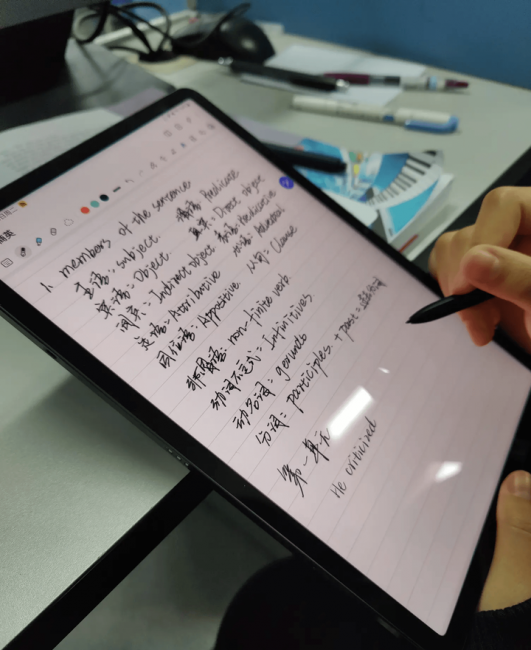 1. members of the sentence
主语: subject. 谓语: Predicate
宾语: Object 直宾: Direct object
间宾: Indirect object 表语: Predicative
定语: Attributive 状语: Adverbial
同位语: Appositive 从句: Clause
非谓语: non-finite verb
动词不定式: Infinitives
动名词: gerunds
分词: participles. + past =
第一单元
He criticized